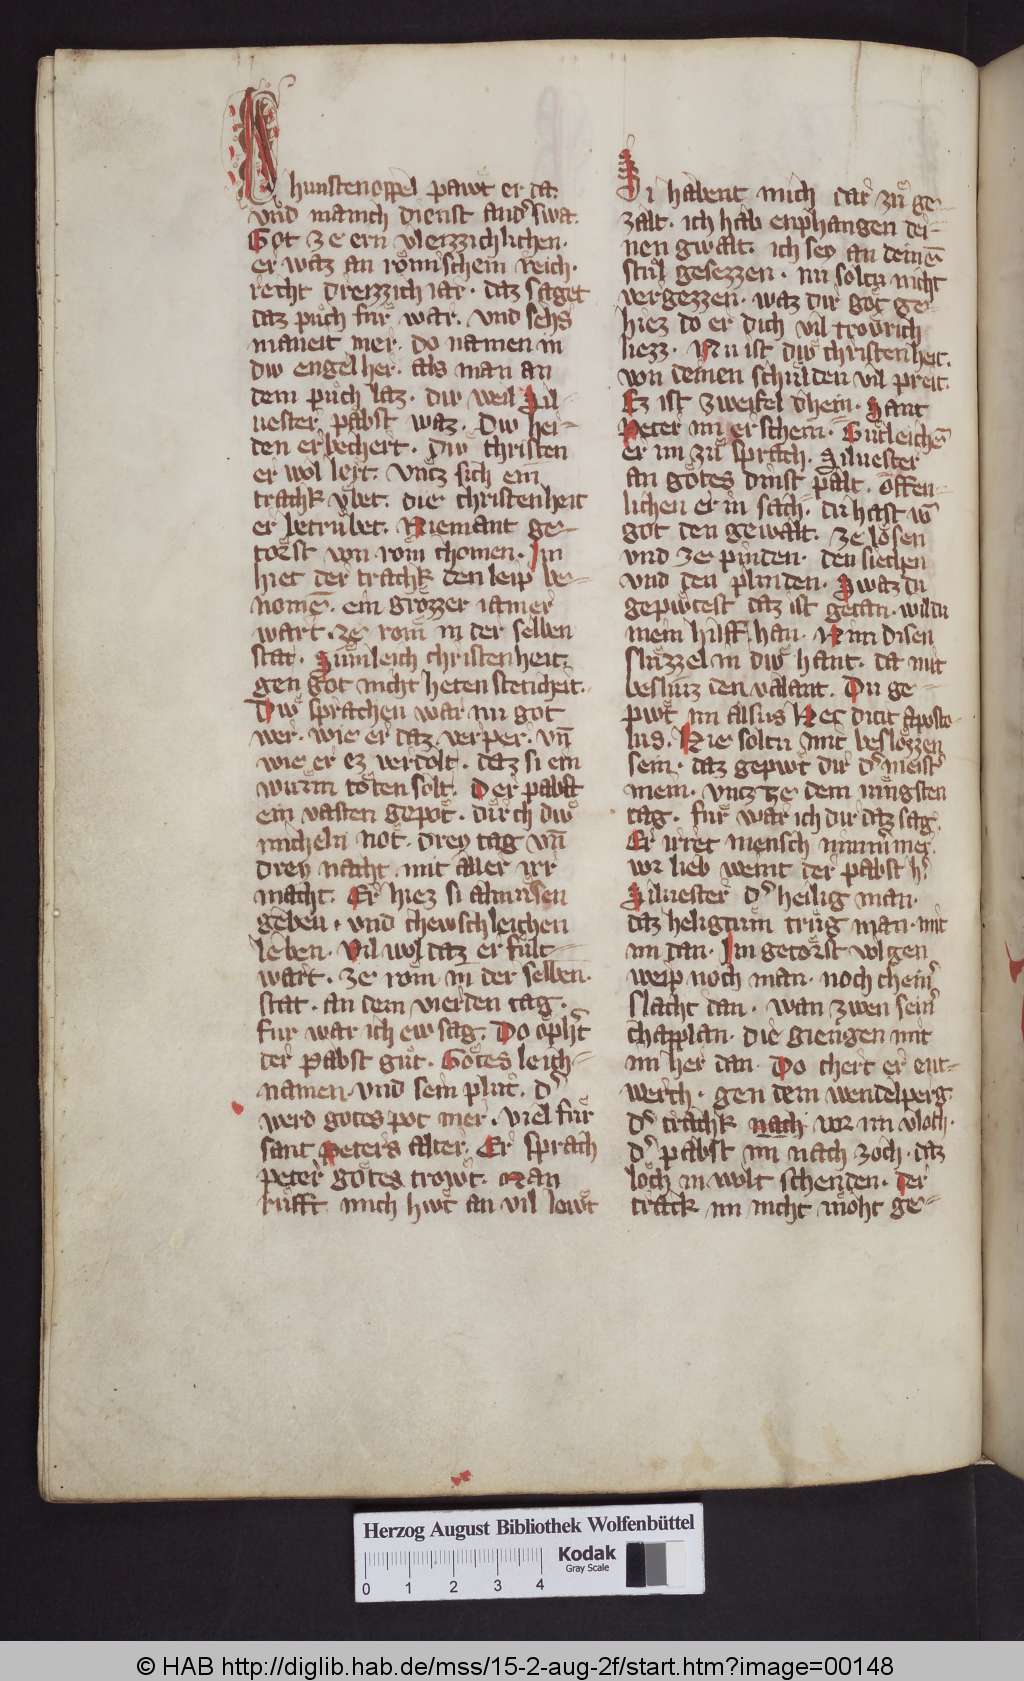 Chunstenoppel pawt er da.
vnd manich dienst anderswa.
Got ze ern vleizzichlichen.
er waz an römischem reich.
recht dreizzich iar. daz saget
daz půch fur war. vnd sehs
maneit mer. do namen in
diw engel her. als man an
dem půch laz. diw weil Sil-
uester pabst waz. Diw hei-
den er bechert. Diw christen
er wol lert. vntz sich ein
trachk v̈bet. die christenheit
er betrübet. Niemant ge-
torst von rom chomen. Im
hiet der trachk den leip be-
nomē. ein grözzer iamer
wart. ze rom in der selben
stat. Sumleich christenheit.
gen got nicht heten steticheit.
Diw sprachen war im got
wer. wie er daz verper. vn̄
wie er ez verdolt. daz si ein
wurm töten solt. Der pabst
ein vasten gepot. durch diw
micheln not. drey tag vn̄
drey nacht. mit aller irr
macht. Er hiez si almůsen
geben. vnd chewschleichen
leben. Vil wol daz erfult
wart. ze rom in der selben.
stat. an dem vierden tag.
fur war ich ew sag. Do opfert
der pabst gůt. Gotes leich-
namen. vnd sein plůt. d
werd gotes pot mer. viel fůr
sant Peters alter. Er sprach
peter gotes trowt. Man
růfft mich hwt an vil lowt
Di habent mich dar zů ge-
zalt. ich hab enphangen dei-
nen gwalt. ich sey an deinē
stul gesezzen. nu soltu nicht
vergezzen. waz dir got ge-
hiez do er dich vil trowrich
liezz. Nu ist diw christenheit.
von deinen schulden vil preit.
Ez ist zweifel dhein. Sant
Peter im erschein. Gůtleichē
er im zů sprach. Siluester
an gotes dinst palt. offen-
lichen er in sach. du hast vō
got den gewalt. ze lösen
vnd ze pinden. den siechen
vnd den plinden. Swaz du
gepiwtest daz ist getan. wildu
mein hilff han. Nim disen
sluzzel in diw hant. da mit
besliuz den valant. Du ge-
pwt im alsus Nec dicit aposto-
lus. Nie soltu mit beslozzen
sein. daz gepwt dir d meist
mein. vntz ze dem iungsten
tag. fur war ich dir daz sag.
Er irret mensch nimmer mer.
vor lieb weint der pabst h
Siluester d heilig man.
daz heligtum trůg man. mit
im dan. Im getorst volgen
weip noch man. noch cheiner
slacht dan. wan zwen seiner
chapplan. die giengen mit
im her dan. Do chert er ent-
werch. gen dem wendelperg
d trachk nach vor im vloch.
d pabst im nach zoch. daz
loch in wolt schenden. der
track im nicht moht ge-
Herzog August Bibliothek Wolfenbüttel
Kodak
Gray Scale
0 1 2 3 4
© HAB http://diglib.hab.de/mss/15-2-aug-2f/start.htm?image=00148